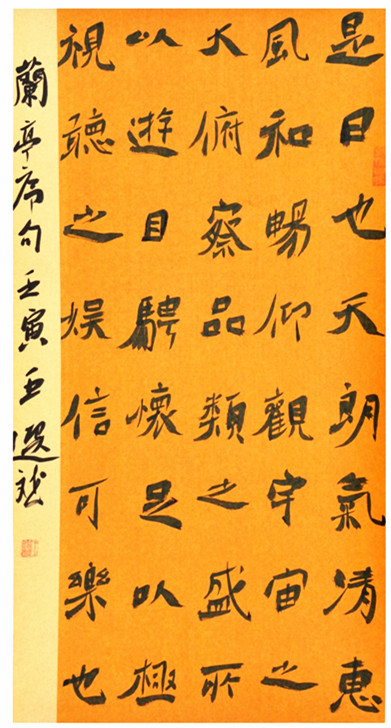 是日也天朗氣清惠
風和暢仰觀宇宙之
大俯察品類之盛所
以遊目騁懷足以極
視聽之娱信可樂也
蘭亭序句壬寅王